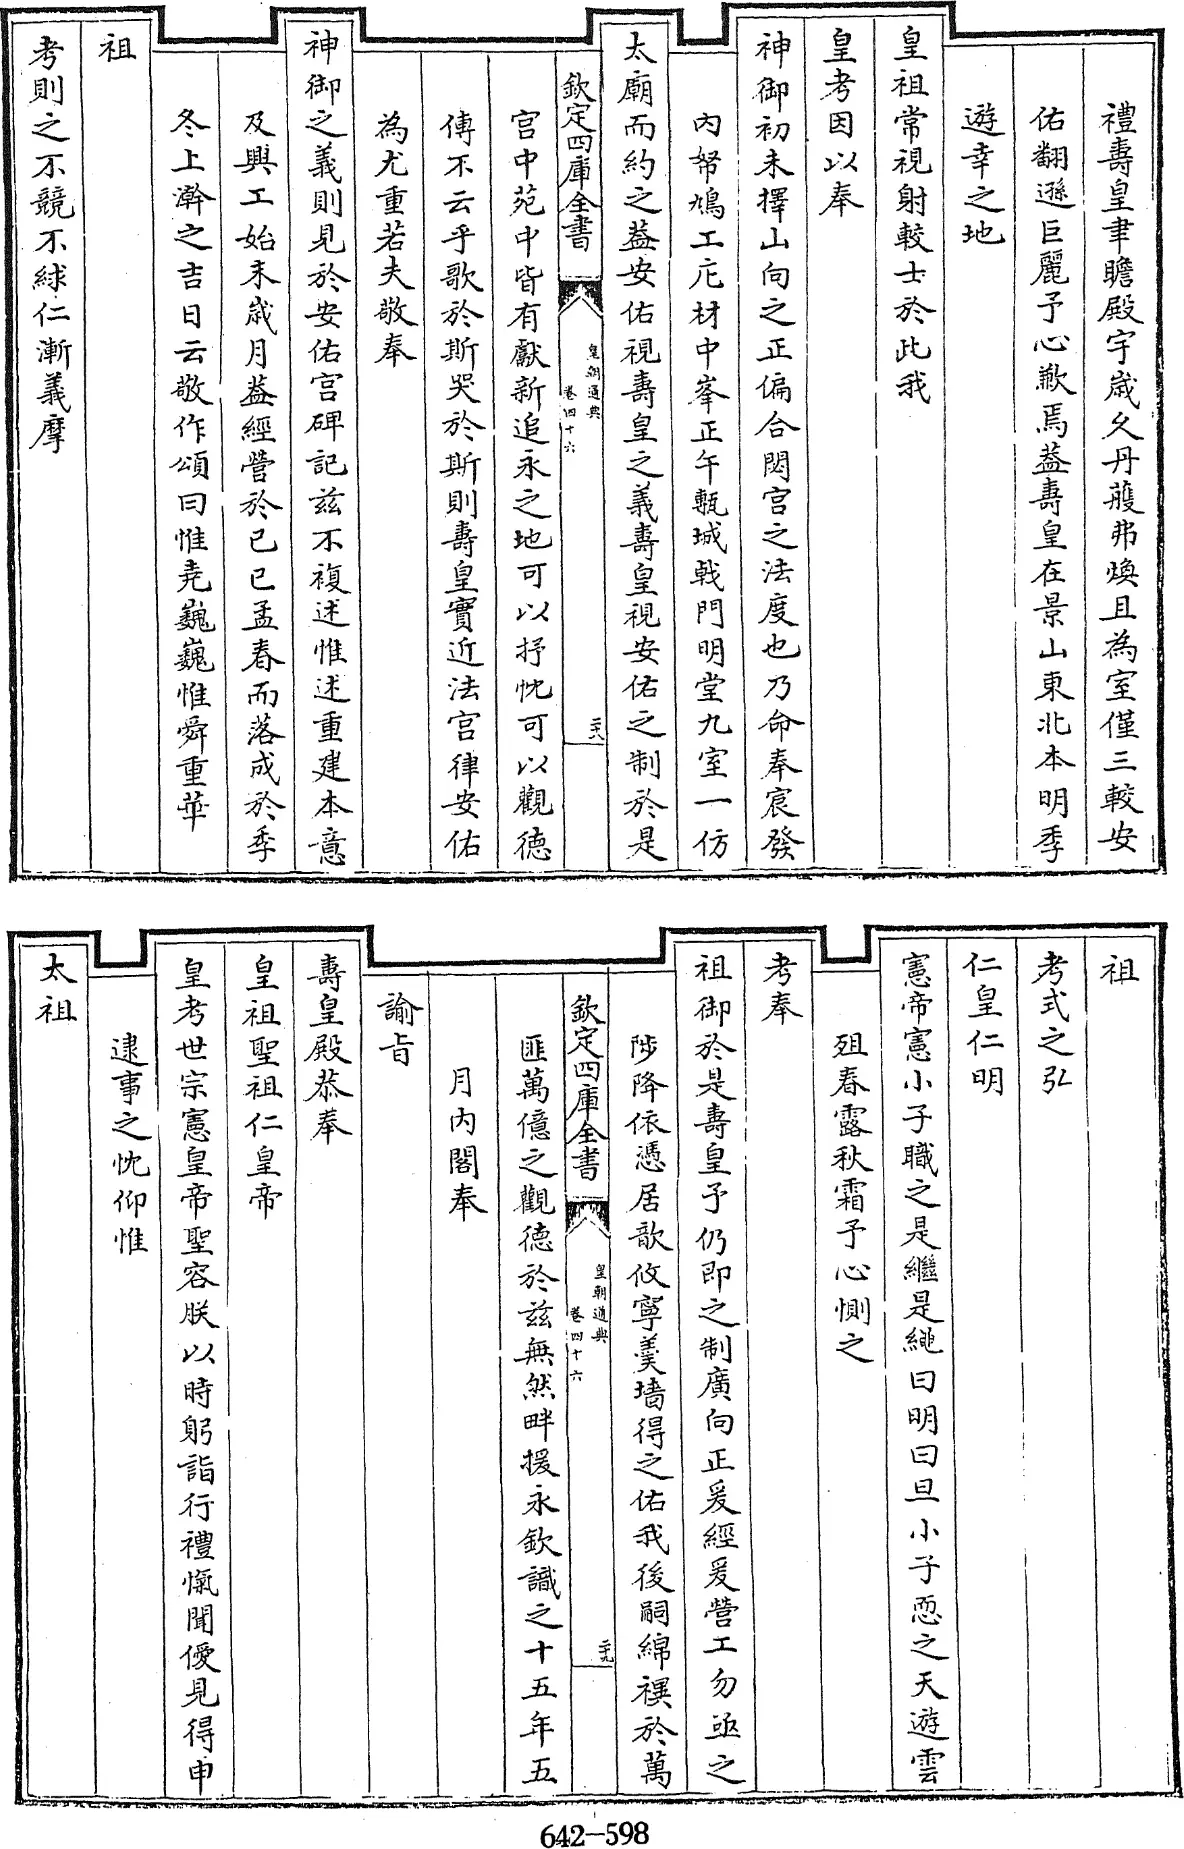 禮壽皇聿瞻殿宇歲久丹雘弗煥且為室僅三較安
佑翻遜巨麗予心歉焉蓋壽皇在景山東北本明季
遊幸之地
皇祖常視射較士於此我
皇考因以奉
神御初未擇山向之正偏合閟宮之法度也乃命奉宸發
內帑鳩工庀材中峯正午甎城戟門明堂九室一仿
太廟而約之葢安佑視壽皇之義壽皇視安佑之制於是
欽定四庫全書
皇朝通典
卷四十六
二十八
宮中苑中皆有獻新追永之地可以抒忱可以觀德
傳不云乎歌於斯哭於斯則壽皇實近法宮律安佑
為尤重若夫敬奉
神御之義則見於安佑宮碑記茲不複述惟述重建本意
及興工始末歲月葢經營於己巳孟春而落成於季
冬上澣之吉日云敬作頌曰惟堯巍巍惟舜重華
祖
考則之不競不絿仁漸義摩
祖
考式之弘
仁皇仁明
憲帝憲小子職之是繼是繩曰明曰旦小子恧之天遊雲
殂春露秋霜予心惻之
考奉
祖御於是壽皇予仍即之制廣向正爰經爰營工勿亟之
陟降依憑居歆攸寧羹墻得之佑我後嗣綿禩於萬
欽定四庫全書
皇朝通典
卷四十六
二十九
匪萬億之觀德於茲無然畔援永欽識之十五年五
月內閣奉
諭旨
壽皇殿恭奉
皇祖聖祖仁皇帝
皇考世宗憲皇帝聖容朕以時躬詣行禮愾聞僾見得申
逮事之忱仰惟
太祖
642-598